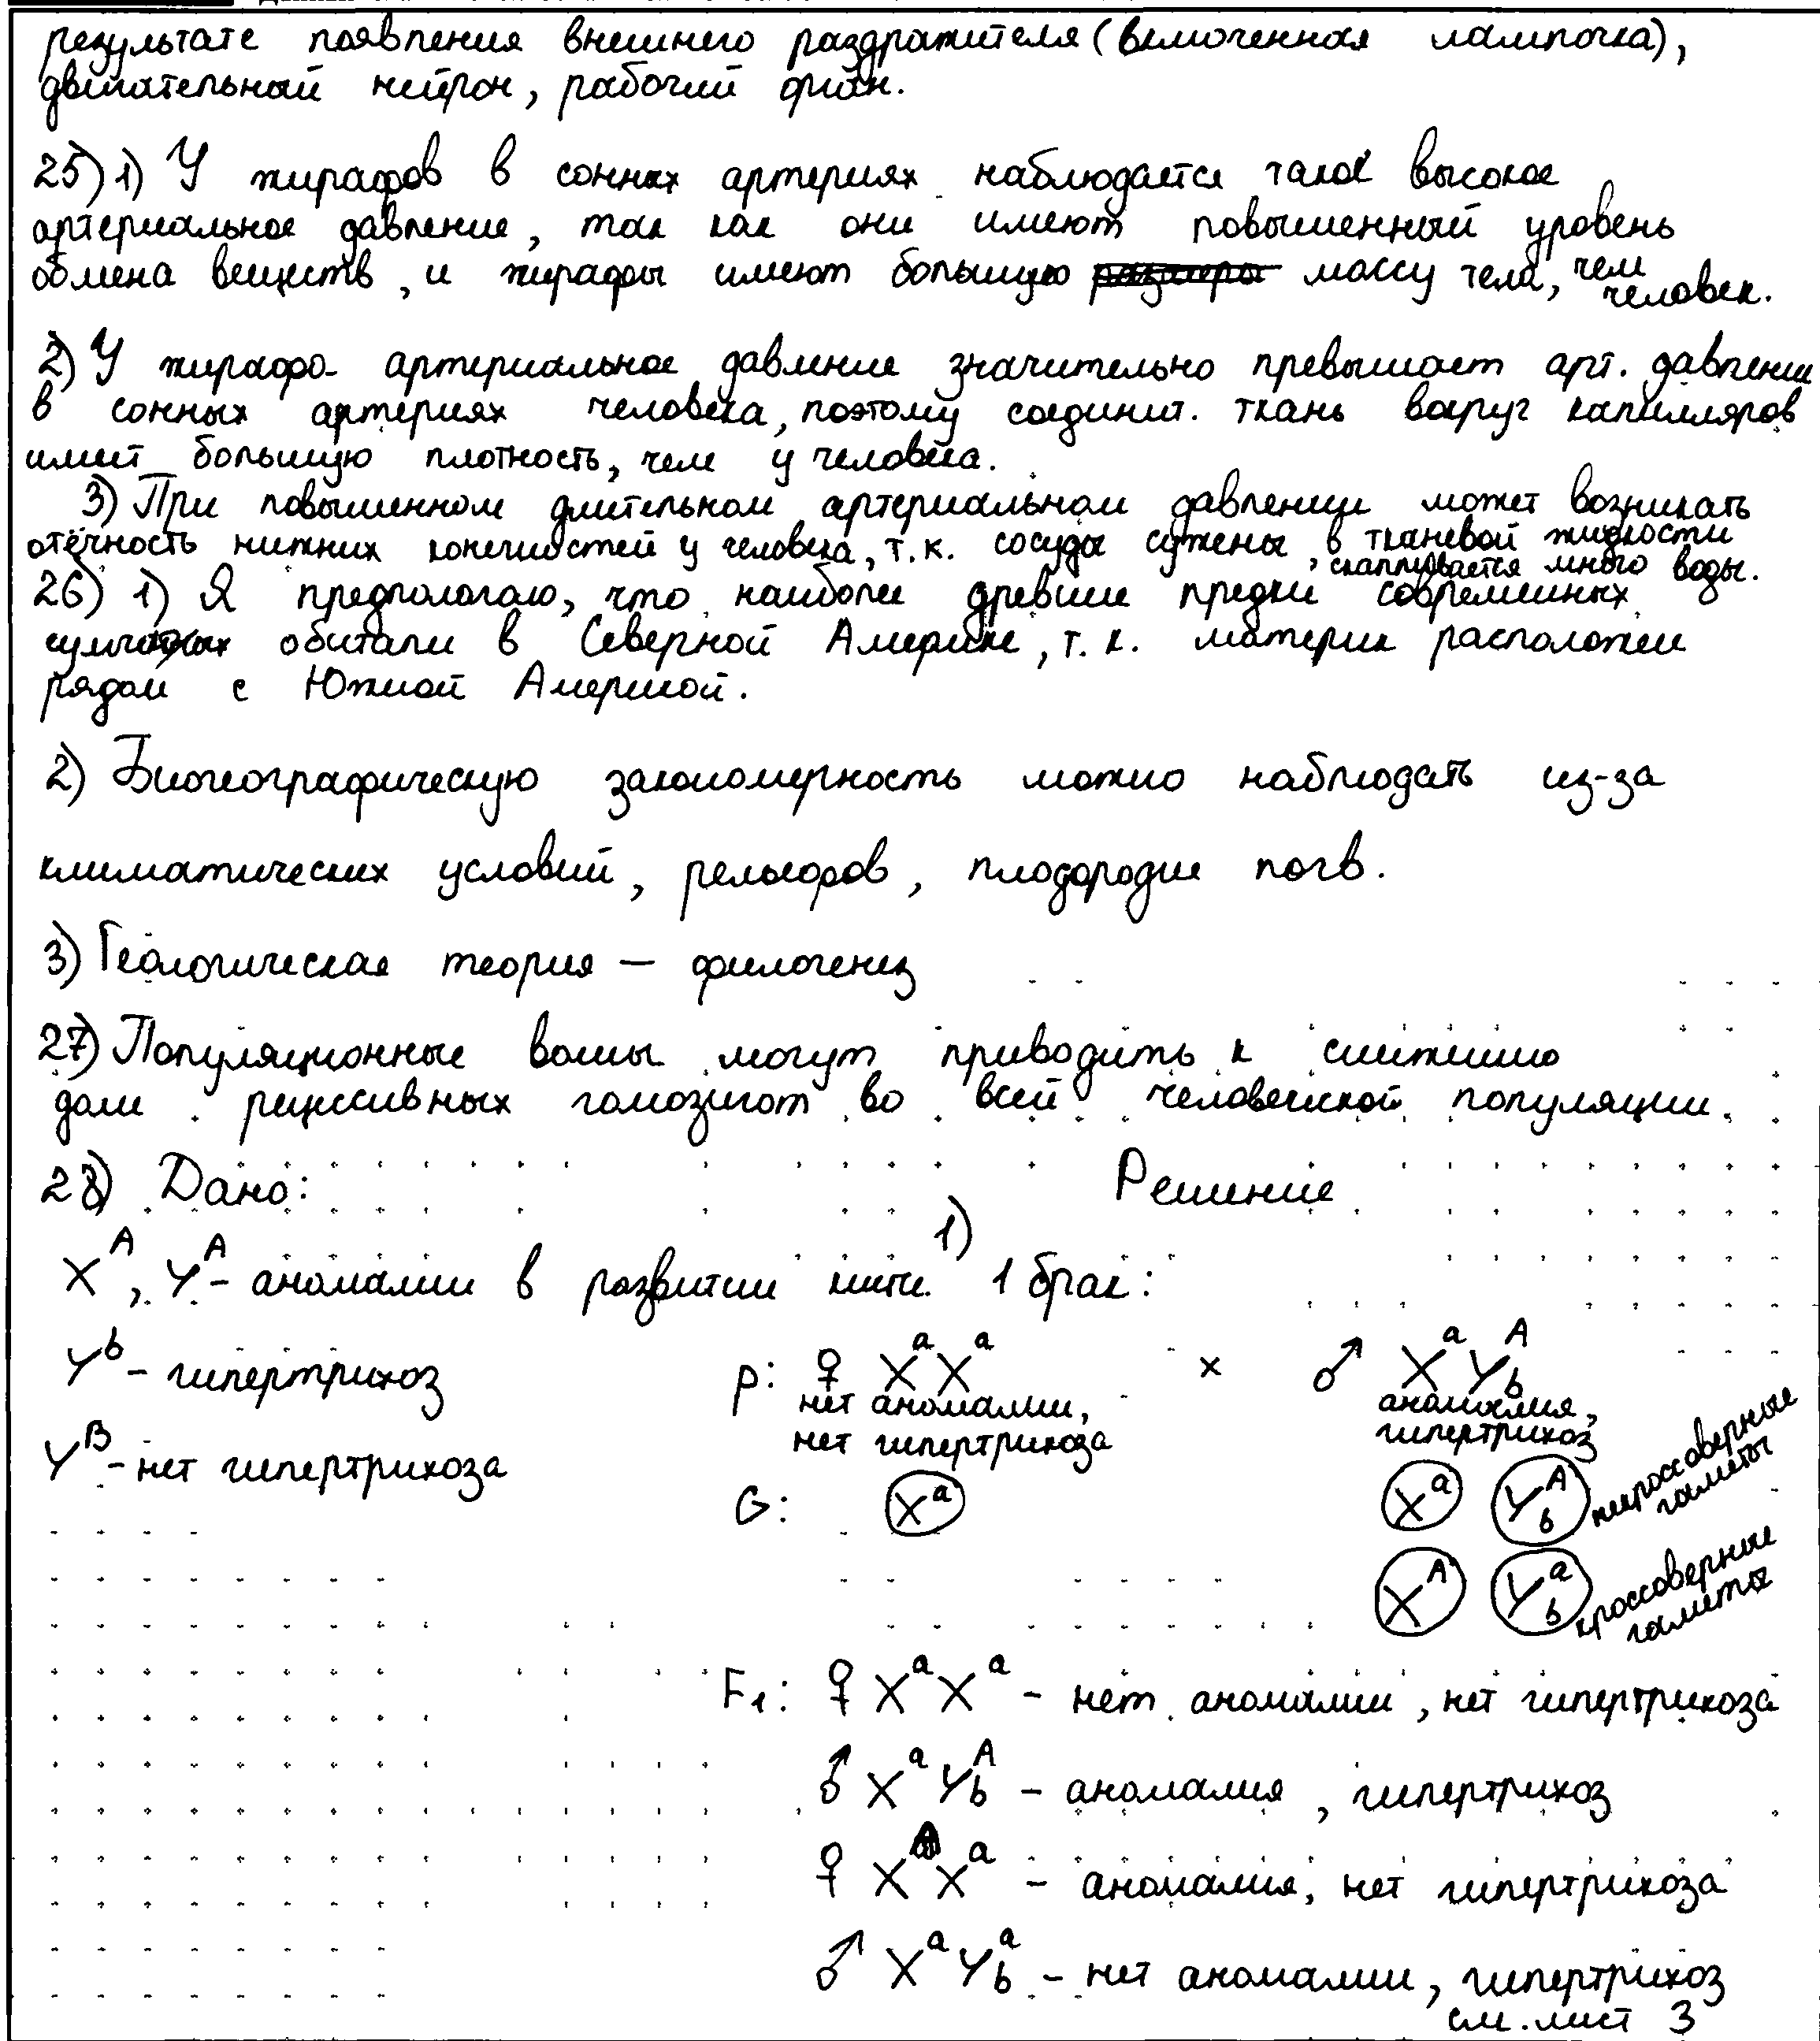 результате появления внешнего раздражителя (включенная лампочка),
двигательный нейрон, рабочий орган.
25) 1) У жирафов в сонных артериях наблюдается такое высокое
артериальное давление, так как они имеют повышенный уровень
обмена веществ, и жирафы имеют большую размеры массу тела, чем
человек.
2) У жирафа артериальное давление значительно превышает арт. давление
в сонных артериях человека, поэтому соединит. ткань вокруг капилляров
имеет большую плотность, чем у человека.
3) При повышенном длительном артериальном давлении может возникать
отёчность нижних конечностей у человека, т.к. сосуды сужены, в тканевой жидкости
скапливается много воды.
26) 1) Я предпологаю, что наиболее древние предки современных
сумчатых обитали в Северной Америке, т.к. материк расположен
рядом с Южной Америкой.
2) Биогеографическую закономерность можно наблюдать из-за
климатических условий, рельефов, плодородие почв.
3) Геологическая теория — филогенез
27) Популяционные волны могут приводить к снижению
доли рецессивных гомозигот во всей человеческой популяции.
28) Дано: Решение
X^A, Y^A - аномалии в развитии кисти. 1) 1 брак:
Y^b - гипертрихоз P: ♀ X^a X^a × ♂ X^a Y^A_b
нет аномалии, аномалия,
нет гипертрихоза гипертрихоз
Y^B - нет гипертрихоза
G: X^a X^a Y^A_b некроссоверные гаметы
X^A Y^a_b кроссоверные гаметы
F1: ♀ X^a X^a - нет аномалии, нет гипертрихоза
♂ X^a Y^A_b - аномалия, гипертрихоз
♀ X^A X^a - аномалия, нет гипертрихоза
♂ X^a Y^a_b - нет аномалии, гипертрихоз
см. лист 3